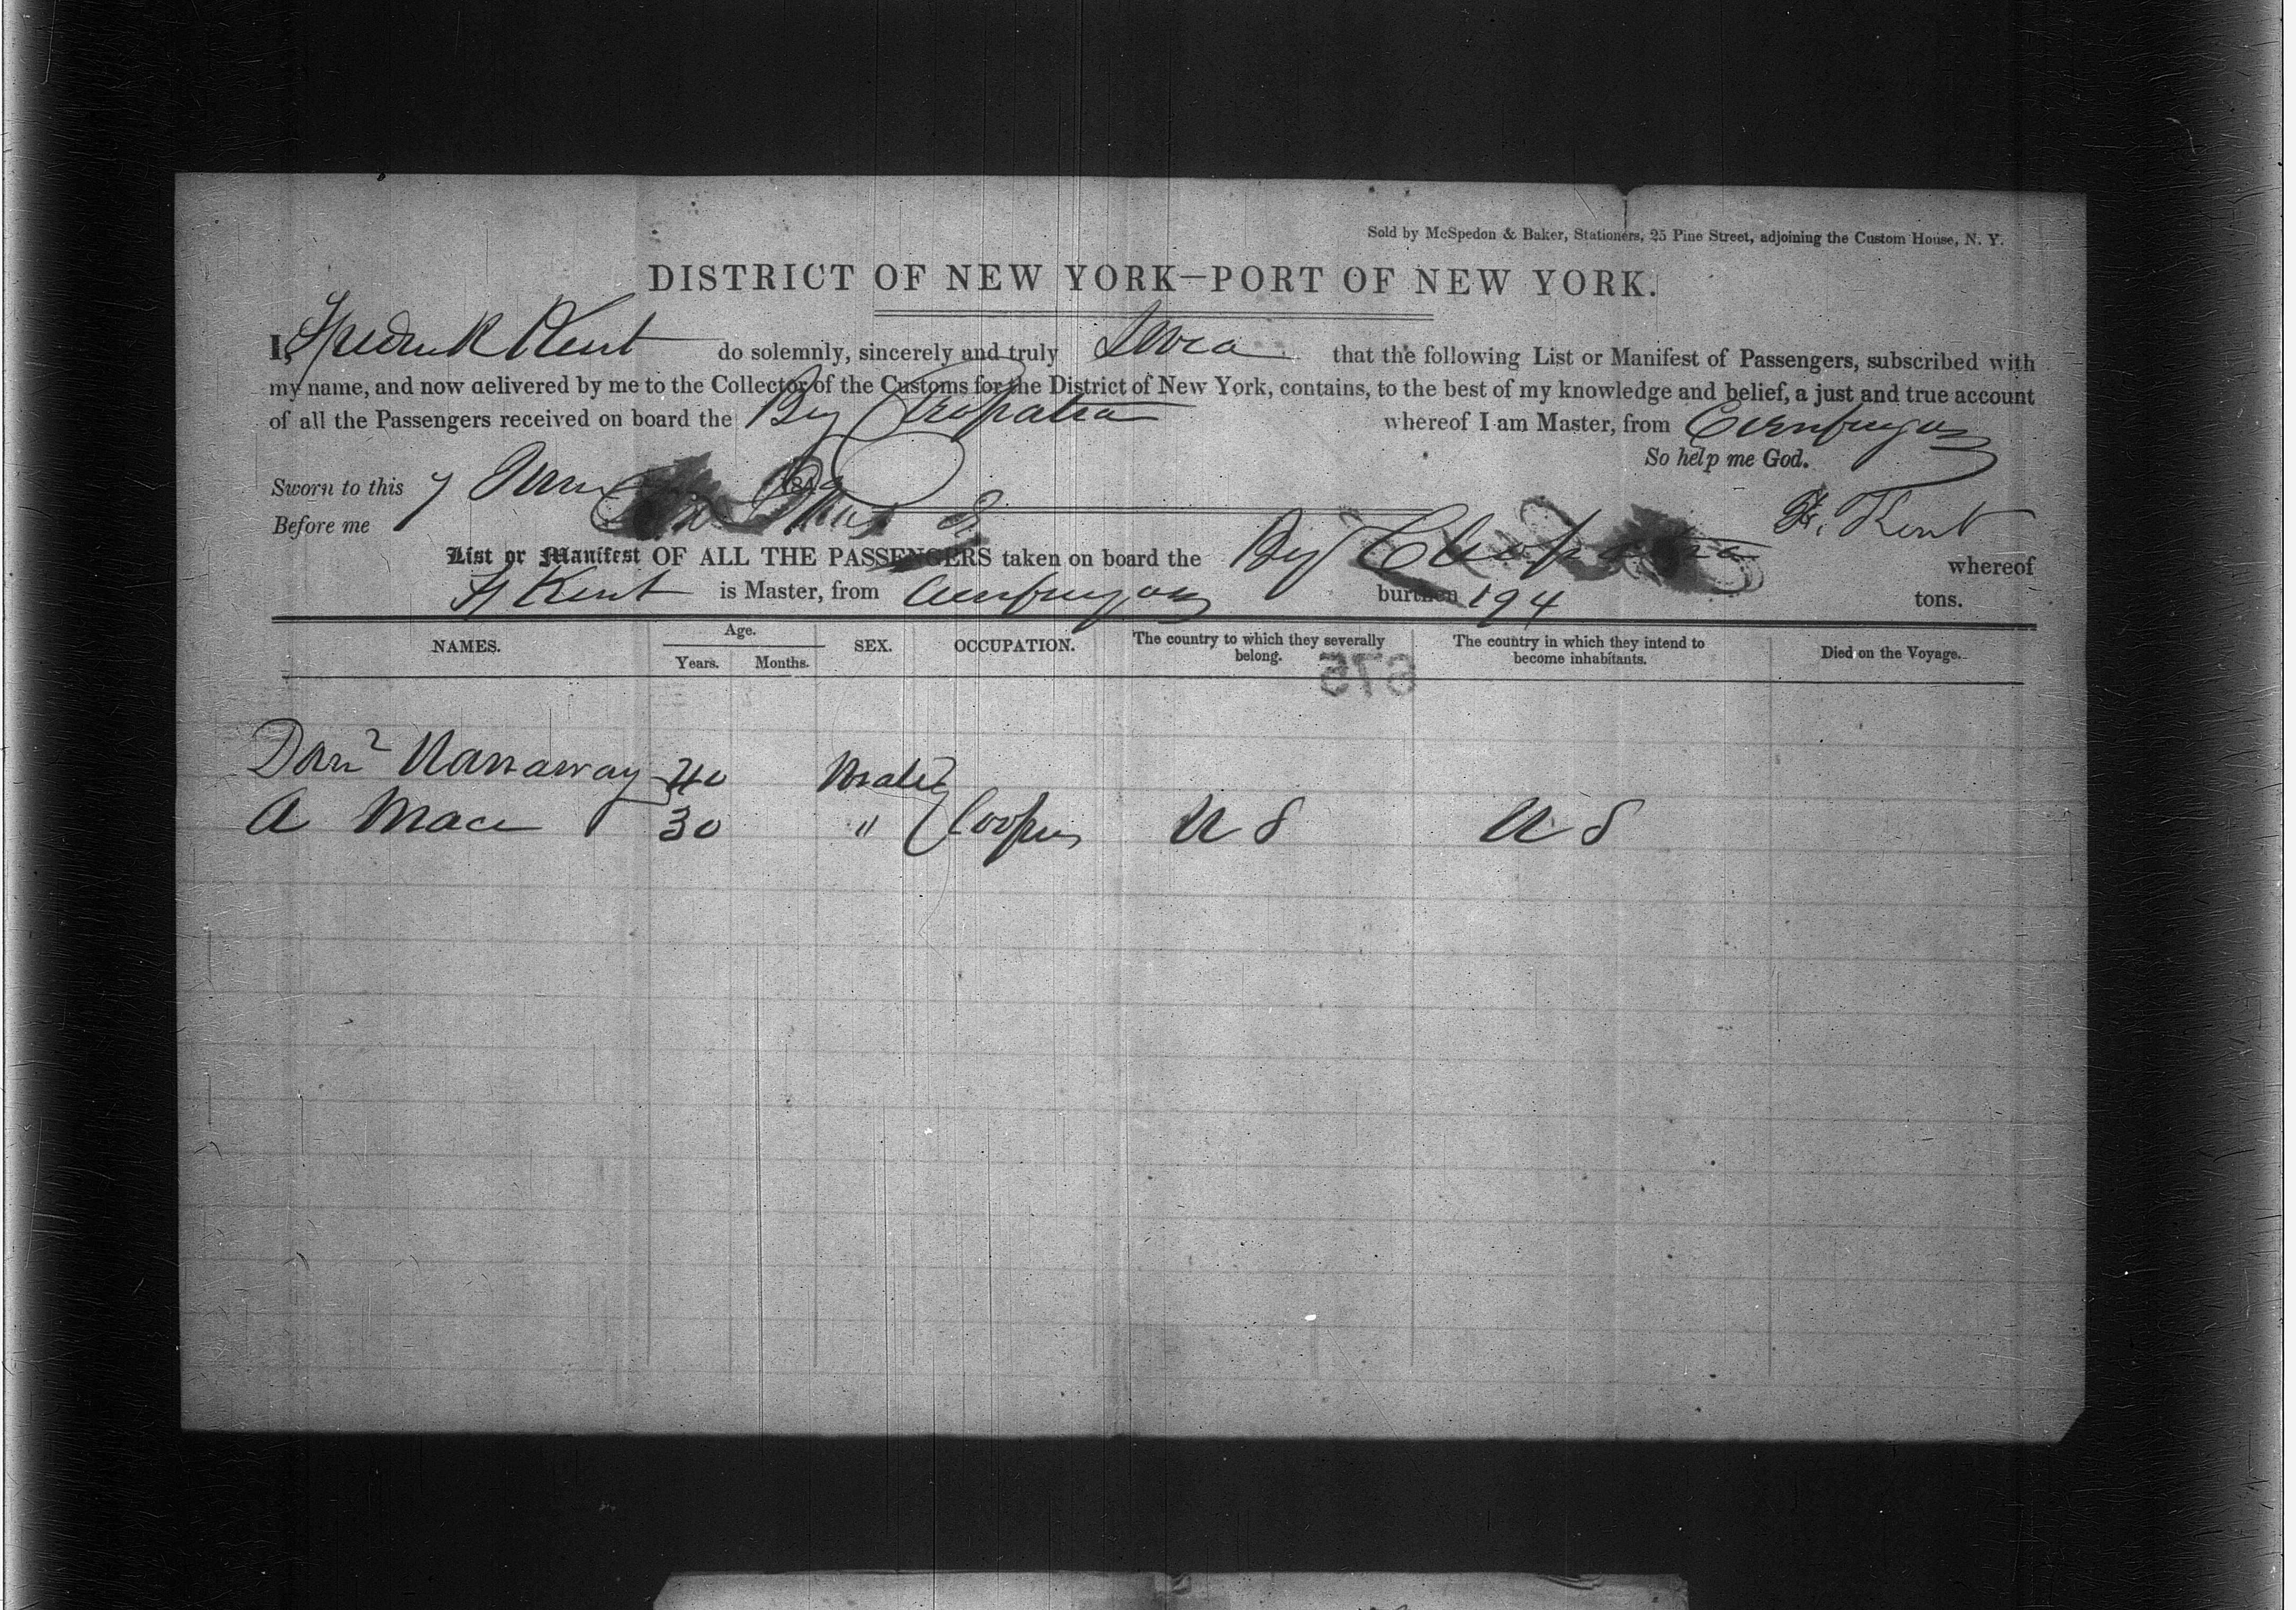 Sold by McSpedon & Baker, Stationers, 25 Pine Street, adjoining the Custom House, N. Y.
DISTRICT OF NEW YORK—PORT OF NEW YORK.
I, Frederick Kent do solemnly, sincerely and truly swear that the following List or Manifest of Passengers, subscribed with
my name, and now delivered by me to the Collector of the Customs for the District of New York, contains, to the best of my knowledge and belief, a just and true account
of all the Passengers received on board the Brig Cleopatra whereof I am Master, from Cienfuegos
So help me God.
Sworn to this 7 June 184
Before me F. Kent
List or Manifest OF ALL THE PASSENGERS taken on board the Brig Cleopatra whereof
F Kent is Master, from Cienfuegos burthen 194 tons.
NAMES. Age. Years. Months. SEX. OCCUPATION. The country to which they severally belong. The country in which they intend to become inhabitants. Died on the Voyage.
575
Danl Hanaway 40 Male
A Mace 30 " Cooper U S U S